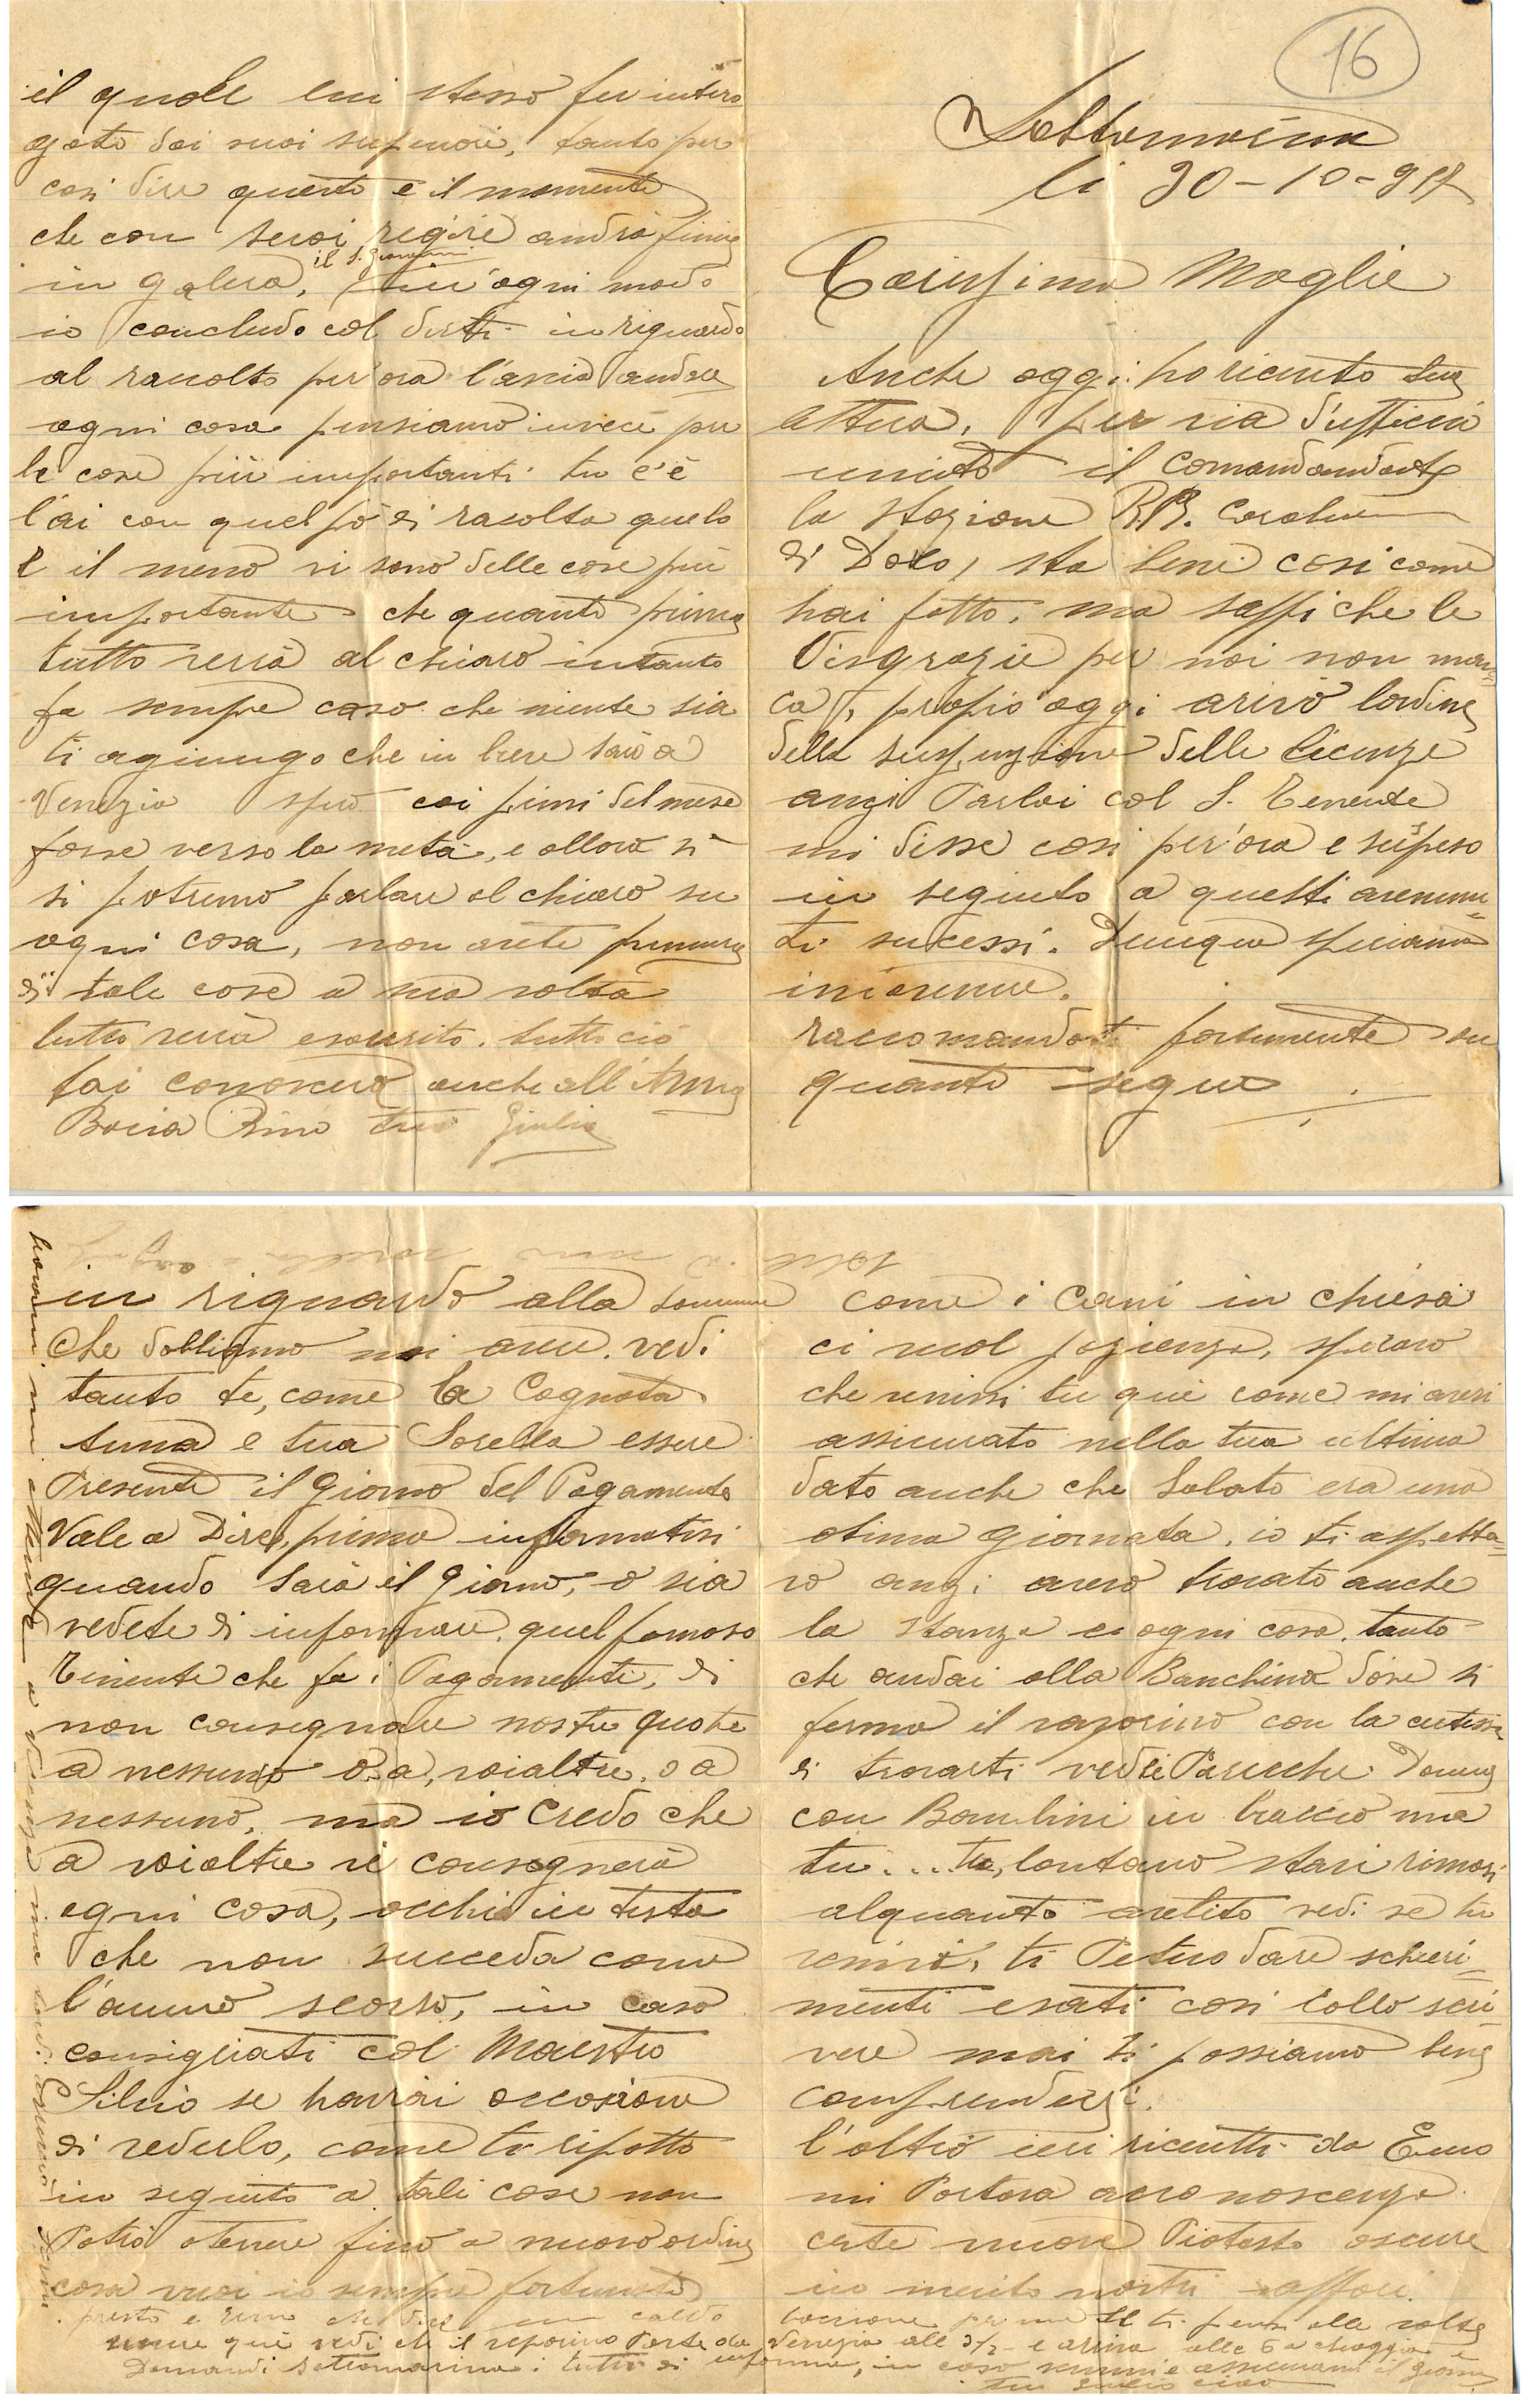 16
Sottomarina
li 30-10-917
Carissima Moglie
Anche oggi ho riceuto tua
lettera, per via d'ufficcii
unito il comandandante
la stazione RR. Carabin
di Dolo, sta bene cosi come
hai fatto, ma sappi che le
Disgrazie per noi non man=
ca, propio oggi arivò lordine
della suspenzione delle licenze
anzi Parlai col S. Tenente
mi disse cosi per'ora e suspeso
in seguito a questi avenu=
ti sucessi. Dunque speriamo
in avenire.
raccomandati fortemente su
quanto segue
in riguardo alla somma
che dobbiamo noi avere. vedi
tanto te, come la Cognata
Anna e tua Sorella essere
Presente il giorno del Pagamento
Vale a Dire, prima informatevi
quando sarà il giorno, o sia
vedete di informare quel famoso
Tenente che fa i Pagamenti, di
non consegnare nostre quote
a nessuno o a voialtre, o a
nessuno, ma io credo che
a voialtre vi consegnerà
ogni cosa, occhi in testa
che non succeda come
l'anno scorso, in caso
consigliati col Maestro
Silvio se havrai occasione
di vederlo, come ti ripetto
in seguito a tali cose non
Potrò otenere fino a nuovo ordine
cosa vuoi io sempre fortunato
come i cani in chiesa
ci vuol pazienza, speravo
che venissi tu qui come mi avevi
assicurato nella tua ultima
dato anche che Sabato era una
otima giornata, io ti aspetta=
vo anzi avevo trovato anche
la stanza e ogni cosa, tanto
che andai alla Banchina dove si
ferma il vaporino con la certessa
di trovarti vedei Parecchie Donne
con Bambini in braccio ma
tu.... tu, lontano stavi rimasi
alquanto avelito vedi se tu
venivi, ti Potevo dare schieri=
menti esati cosi collo scri=
vere mai si possiamo bene
comprenderzi.
l'altro ieri ricevetti da Emo
mi Portava a conoscenza
certe nuove Piotosto oscure
in merito nostri affari.
il quale lui stesso fu intero
gato dai suoi superiori, tanto per
cosi dire questo e il momento
che con suoi regiri andrà finire
in galera, il S. Giovanni in'ogni modo
io concludo col dirti in riguardo
al racolto per'ora lascia andare
ogni cosa pensiamo invece per
le cose più importanti tu c'è
l'ai con quel pò di racolto quelo
è il meno vi sono delle cose più
importante che quanto prima
tutto verrà al chiaro intanto
fa sempre caso che niente sia
ti agiungo che in breve sarò a
Venezia spero coi primi del mese
forse verso la metà, e allora si
si potremo parlare al chiaro su
ogni cosa, non avete premura
di tale cose a sua volta
tutto verrà esaurito. tutto ciò
fai conoscere anche all'Anna
Bacia Rino tuo Giulio
presto e Rino che dice un caldo
bacione per me ti pensi alle volte
venire qui vedi che il vaporino Parte da Venezia alle 3½ e ariva alle 6 a chioggia e
Domandi Sottomarina i tutti di informa, in caso venivi e assicurami il giorno
tuo Giulio ciao